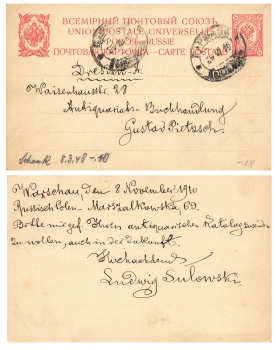 ВСЕМІРНЫЙ ПОЧТОВЫЙ СОЮЗЪ.
UNION POSTALE UNIVERSELLE
РОССІЯ-RUSSIE
ПОЧТОВАЯ КАРТОЧКА-CARTE POSTALE
Dresden-A.
Waisenhausstr. 28
Antiquariats-Buchhandlung
Gustav Pietzsch.
Warschau, den 8 November 1910
Russisch Polen - Marszalkowska, 69.
Bitte mir gef. Ihren antiquarischen Katalog senden
zu wollen, auch in der Zukunft.
Hochachtend
Ludwig Sulowski.